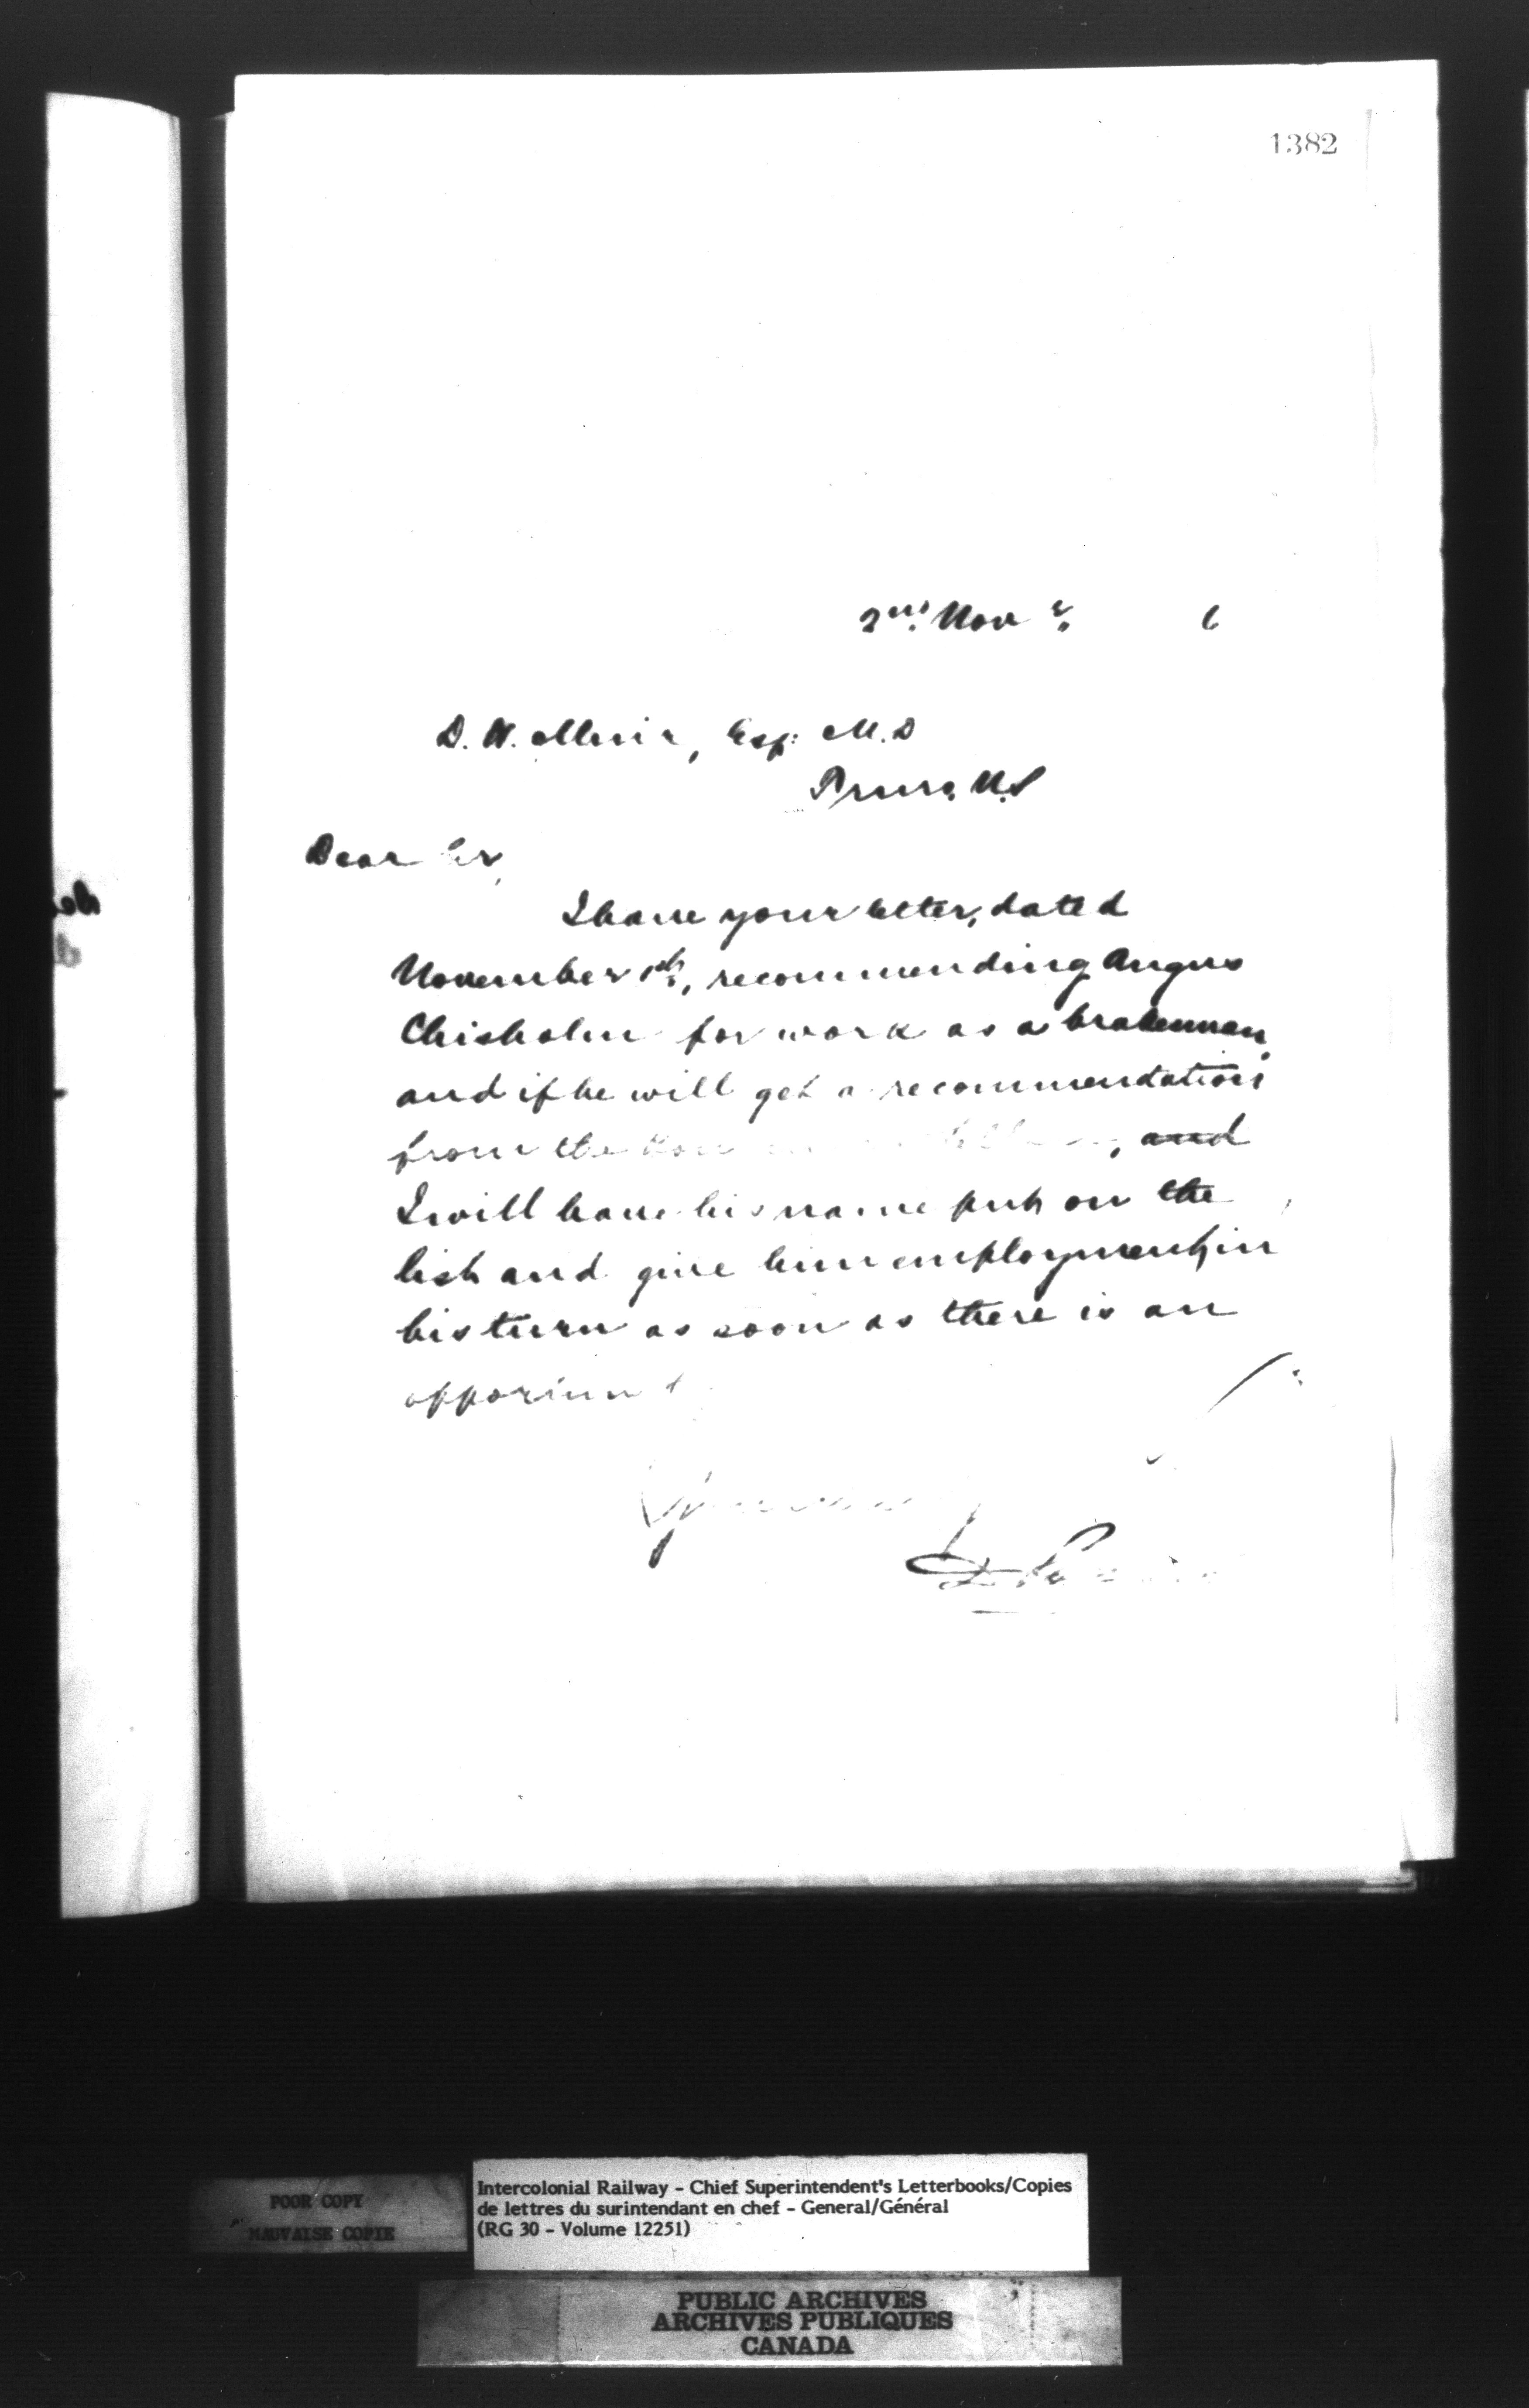 1382
2nd. Nov r. 6
D. H. Muir, Esq: M.D
Truro, N.S
Dear Sir,
I have your letter, dated
November 1st, recommending Angus
Chisholm for work as a brakeman
and if he will get a recommendation
from the Hon , and
I will have his name put on the
list and give him employment, in
his turn as soon as there is an
opportunit
Yours
POOR COPY
MAUVAISE COPIE
Intercolonial Railway - Chief Superintendent's Letterbooks/Copies
de lettres du surintendant en chef - General/Général
(RG 30 - Volume 12251)
PUBLIC ARCHIVES
ARCHIVES PUBLIQUES
CANADA